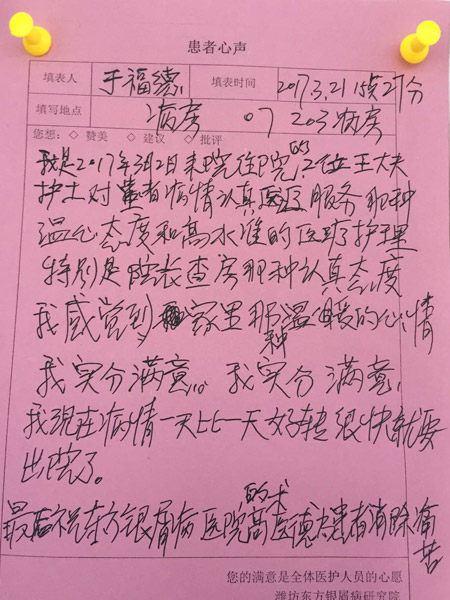 患者心声
填表人 于福德 填表时间 2017.3.21 15点27分
填写地点 病房 07 203病房
您想: ◇ 赞美 ◇ 建议 ◇ 批评
我是2017年3月2日来院住院的 位王大夫
护士对患者病情认真 服务那种
温心态度和高水准的医疗护理
特别是院长查房那种认真态度
我感觉到 家里那种温暖的心情
我实分满意。我实分满意,
我现在病情一天比一天好转很快就要
出院了。
最后祝东方银屑病医院高 的术医德为患者消除痛苦
您的满意是全体医护人员的心愿
潍坊东方银屑病研究院